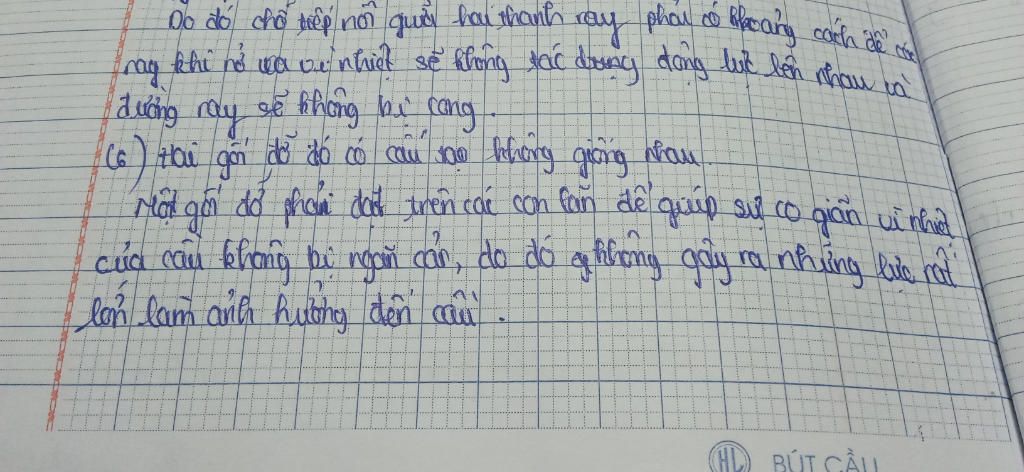 Do đó chỗ tiếp nối giữa hai thanh ray phải có khoảng cách để các
ray khi nở ra vì nhiệt sẽ không tác dụng động lực lên nhau và
đường ray sẽ không bị cong.
C6) Hai gối đỡ đó có cấu tạo không giống nhau
Một gối đỡ phải đặt trên các con lăn để giúp sự co giãn vì nhiệt
của cầu không bị ngăn cản, do đó không gây ra những lực rất
lớn làm ảnh hưởng đến cầu.
HL BÚT CẦU